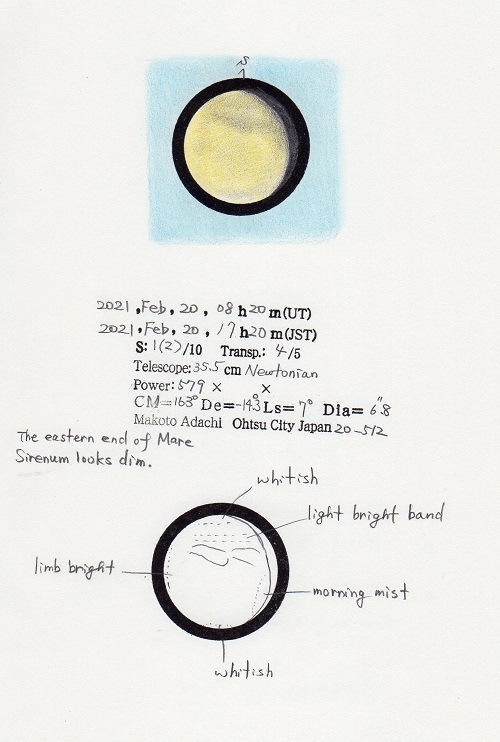 S
2021, Feb, 20, 08 h 20 m (UT)
2021, Feb, 20, 17 h 20 m (JST)
S: 1(2)/10 Transp.: 4/5
Telescope: 35.5 cm Newtonian
Power: 579 × ×
CM=163° De=-14.3° Ls= 7° Dia= 6".8
Makoto Adachi Ohtsu City Japan 20-512
The eastern end of Mare
Sirenum looks dim.
whitish
light bright band
limb bright
morning mist
whitish